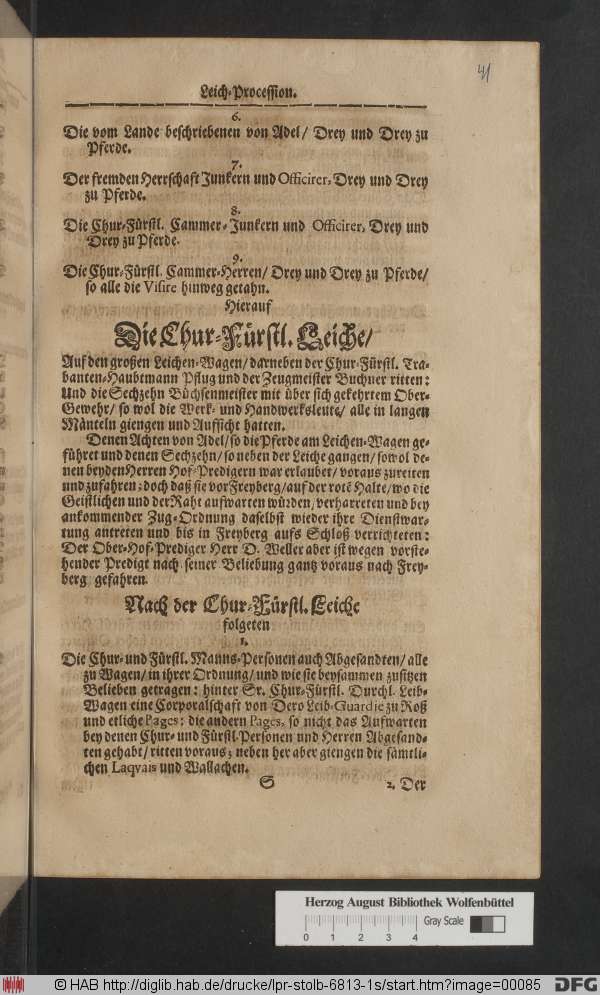 41
Leich-Procession.
6.
Die vom Lande beschriebenen von Adel/ Drey und Drey zu
Pferde.
7.
Der fremden Herrschaft Junkern und Officirer, Drey und Drey
zu Pferde.
8.
Die Chur-Fürstl. Cammer-Junkern und Officirer, Drey und
Drey zu Pferde.
9.
Die Chur-Fürstl. Cammer-Herren/ Drey und Drey zu Pferde/
so alle die Visire hinweg getahn.
Hierauf
Die Chur-Fürstl. Leiche/
Auf den großen Leichen-Wagen/ darneben der Chur-Fürstl. Tra-
banten-Haubtmann Pflug und der Zeugmeister Buchner ritten:
Und die Sechzehn Büchsenmeister mit über sich gekehrtem Ober-
Gewehr/ so wol die Werk- und Handwerksleute/ alle in langen
Mänteln giengen und Aufsicht hatten.
Denen Achten von Adel/ so die Pferde am Leichen-Wagen ge-
führet und denen Sechzehn/ so neben der Leiche gangen/ sowol de-
nen beyden Herren Hof-Predigern war erlaubet/ voraus zureiten
und zufahren: doch daß sie vor Freyberg/ auf der rotē Halte/ wo die
Geistlichen und der Raht aufwarten würden/ verharreten und bey
ankommender Zug-Ordnung daselbst wieder ihre Dienstwar-
tung antreten und bis in Freyberg aufs Schloß verrichteten:
Der Ober-Hof-Prediger Herr D. Weller aber ist wegen vorste-
hender Predigt nach seiner Beliebung gantz voraus nach Frey-
berg gefahren.
Nach der Chur-Fürstl. Leiche
folgeten
1.
Die Chur- und Fürstl. Manns-Personen auch Abgesandten/ alle
zu Wagen/ in ihrer Ordnung/ und wie sie beysammen zusitzen
Belieben getragen: hinter Sr. Chur-Fürstl. Durchl. Leib-
Wagen eine Corporalschaft von Dero Leib-Guardie zu Roß
und etliche Pages: die andern Pages, so nicht das Aufwarten
bey denen Chur- und Fürstl. Personen und Herren Abgesand-
ten gehabt/ ritten voraus; neben her aber giengen die sämtli-
chen Laqvais und Wallachen.
S 2. Der
Herzog August Bibliothek Wolfenbüttel
0 1 2 3 4 Gray Scale
© HAB http://diglib.hab.de/drucke/lpr-stolb-6813-1s/start.htm?image=00085
DFG